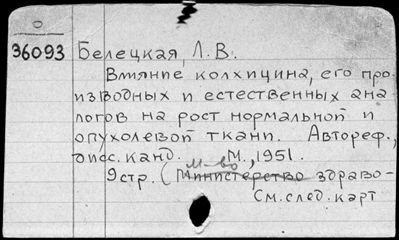 36093 Белецкая, Л. В.
Влияние колхицина, его про-
изводных и естественных ана-
логов на рост нормальной и
опухолевой ткани. Автореф.,
дисс. канд. М., 1951.
9 стр. (М-во Министерство здраво-
См. след. карт